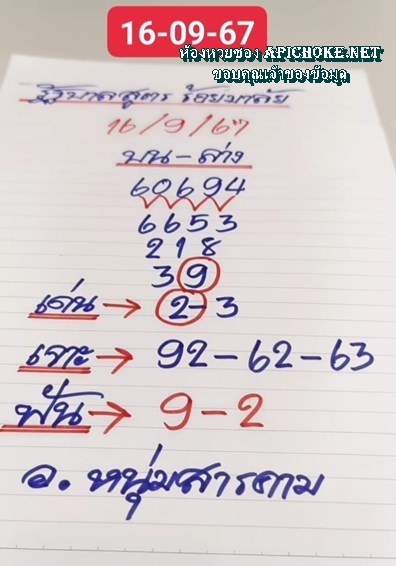 16-09-67
ห้องหวยของ APICHOKE.NET
ขอบคุณเจ้าของข้อมูล
รัฐบาลสูตร ร้อยมาลัย
16/9/67
บน-ล่าง
60694
6653
218
39
เด่น→ 2-3
เจาะ→ 92-62-63
ฟัน→ 9-2
อ. หนุ่มสารคาม